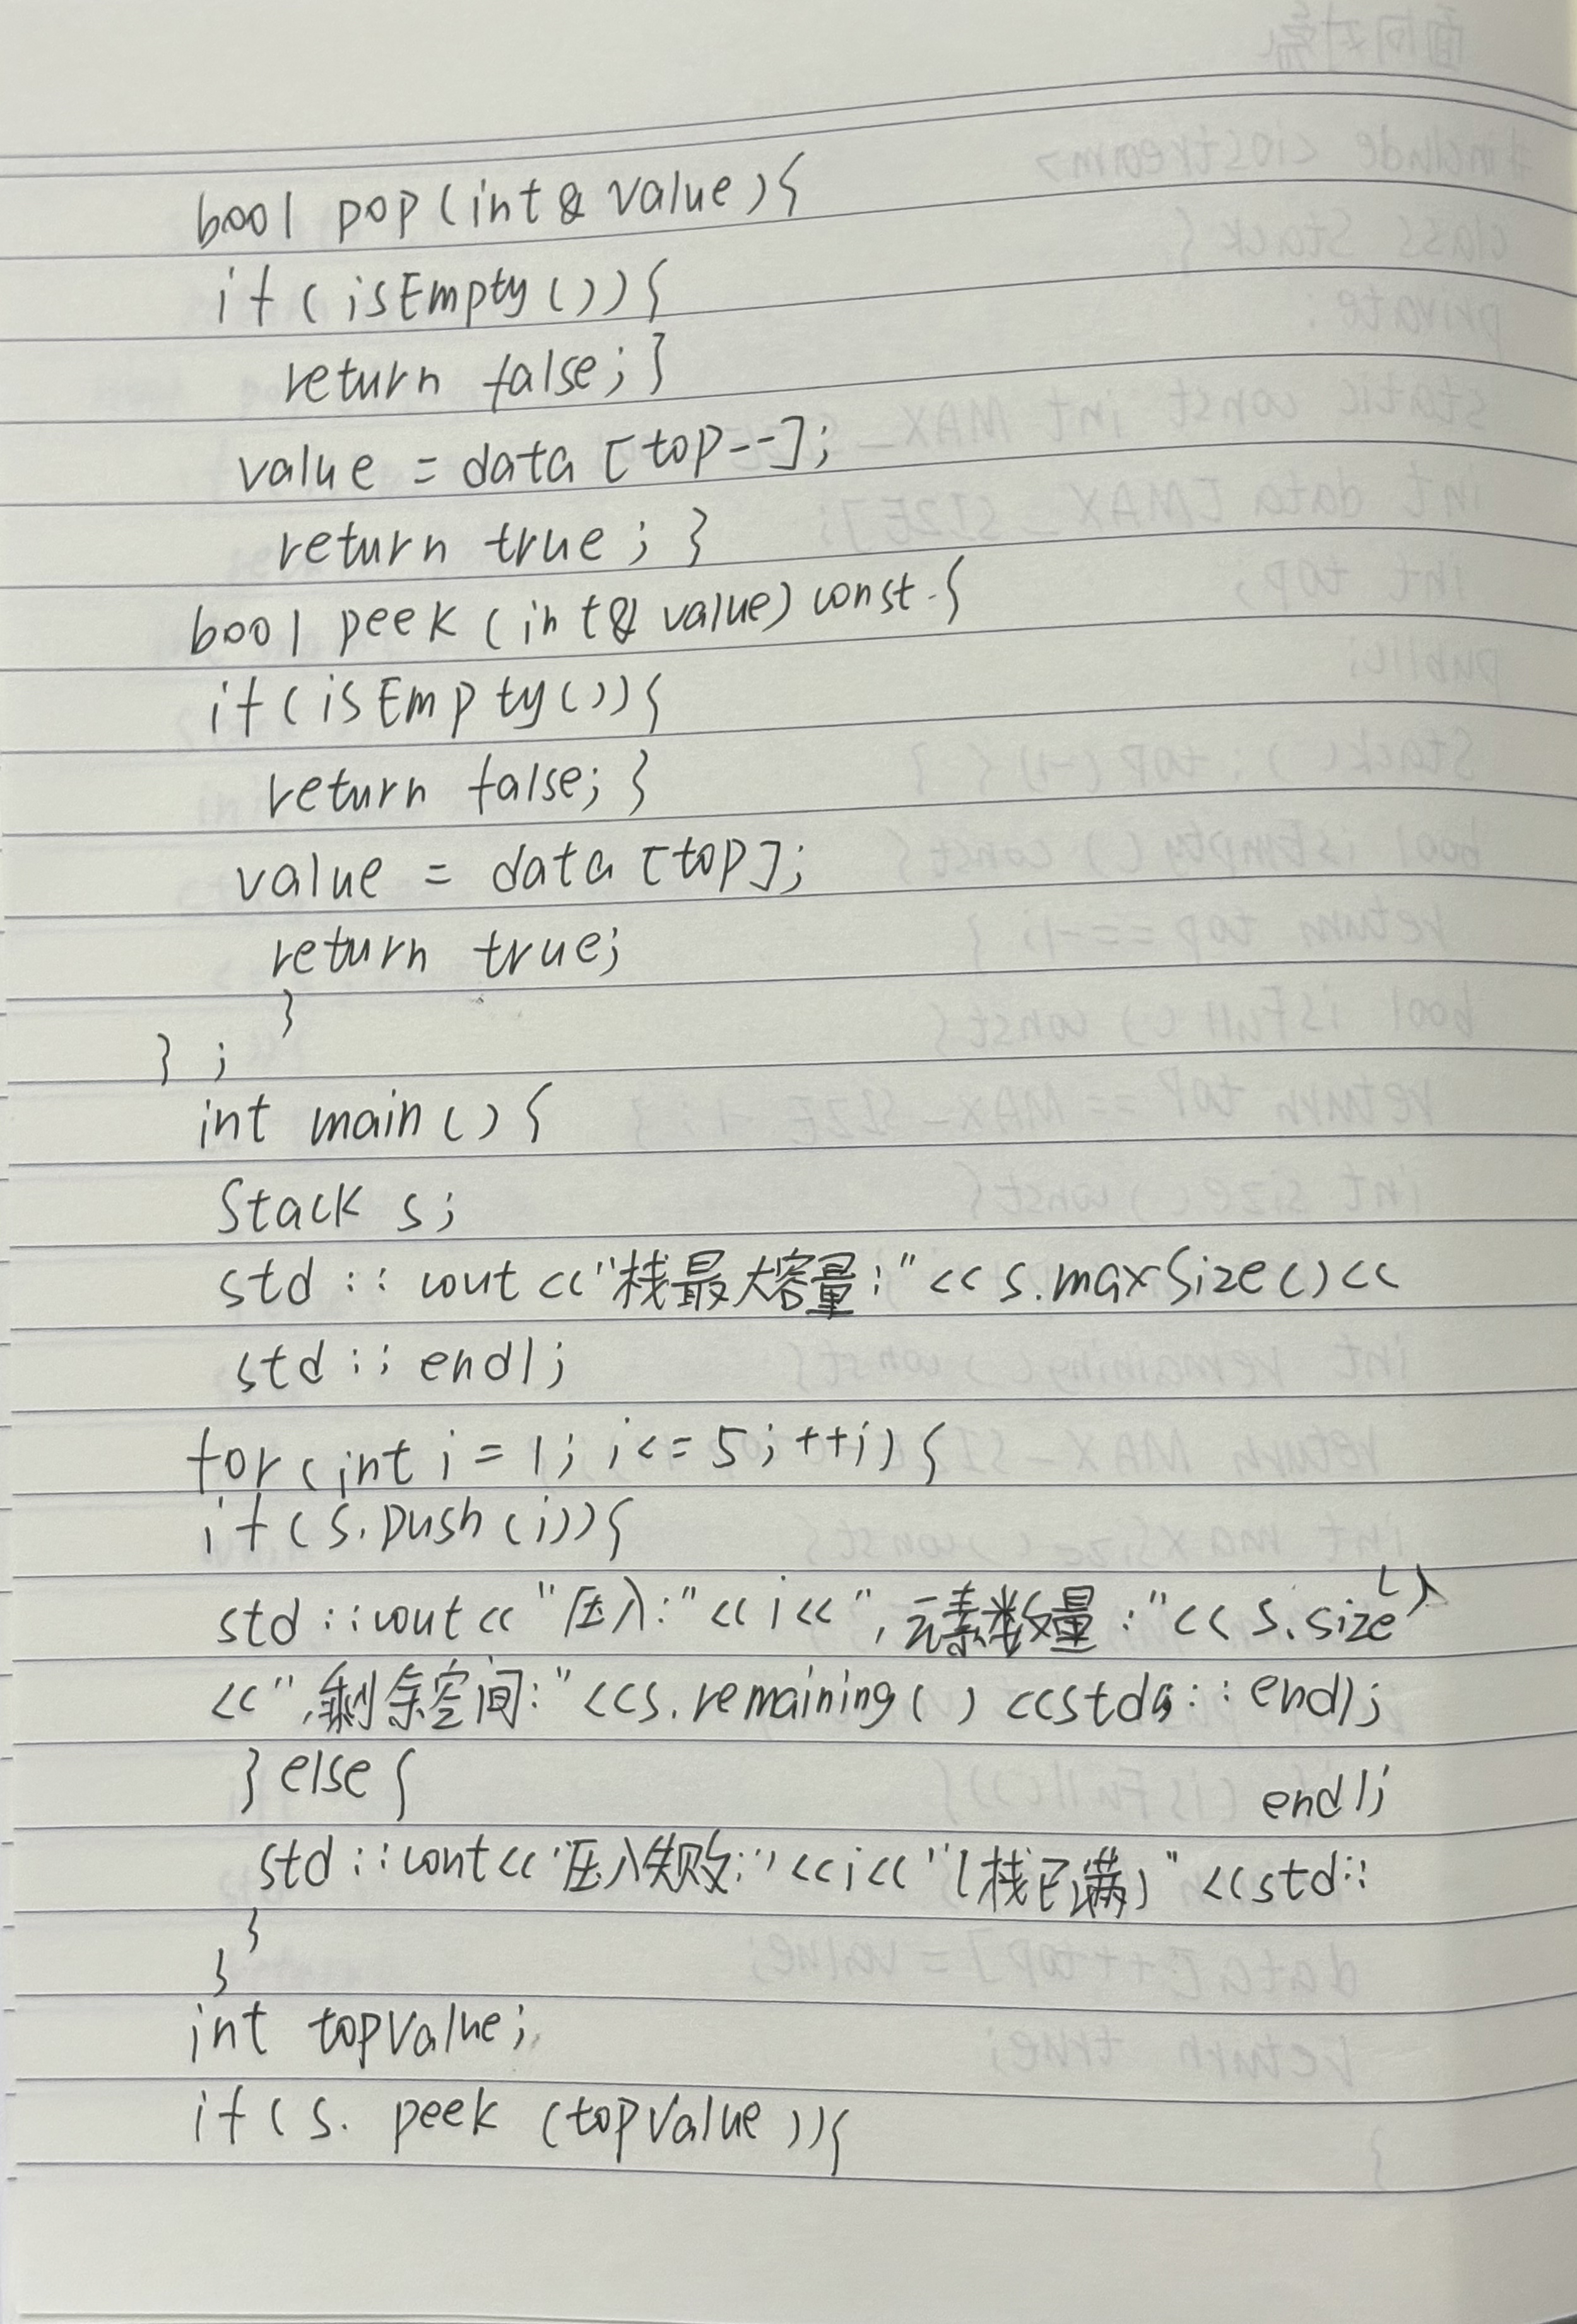 bool pop(int& value){
if(isEmpty()){
return false;}
value = data[top--];
return true;}
bool peek(int& value)const{
if(isEmpty()){
return false;}
value = data[top];
return true;
}
};
int main(){
Stack s;
std::cout<<"栈最大容量:"<<s.maxSize()<<
std::endl;
for(int i=1;i<=5;++i){
if(s.push(i)){
std::cout<<"压入:"<<i<<",元素数量:"<<s.size()
<<",剩余空间:"<<s.remaining()<<std::endl;
}else{
std::cout<<"压入失败:"<<i<<"(栈已满)"<<std::
endl;
}
}
int topValue;
if(s.peek(topValue)){